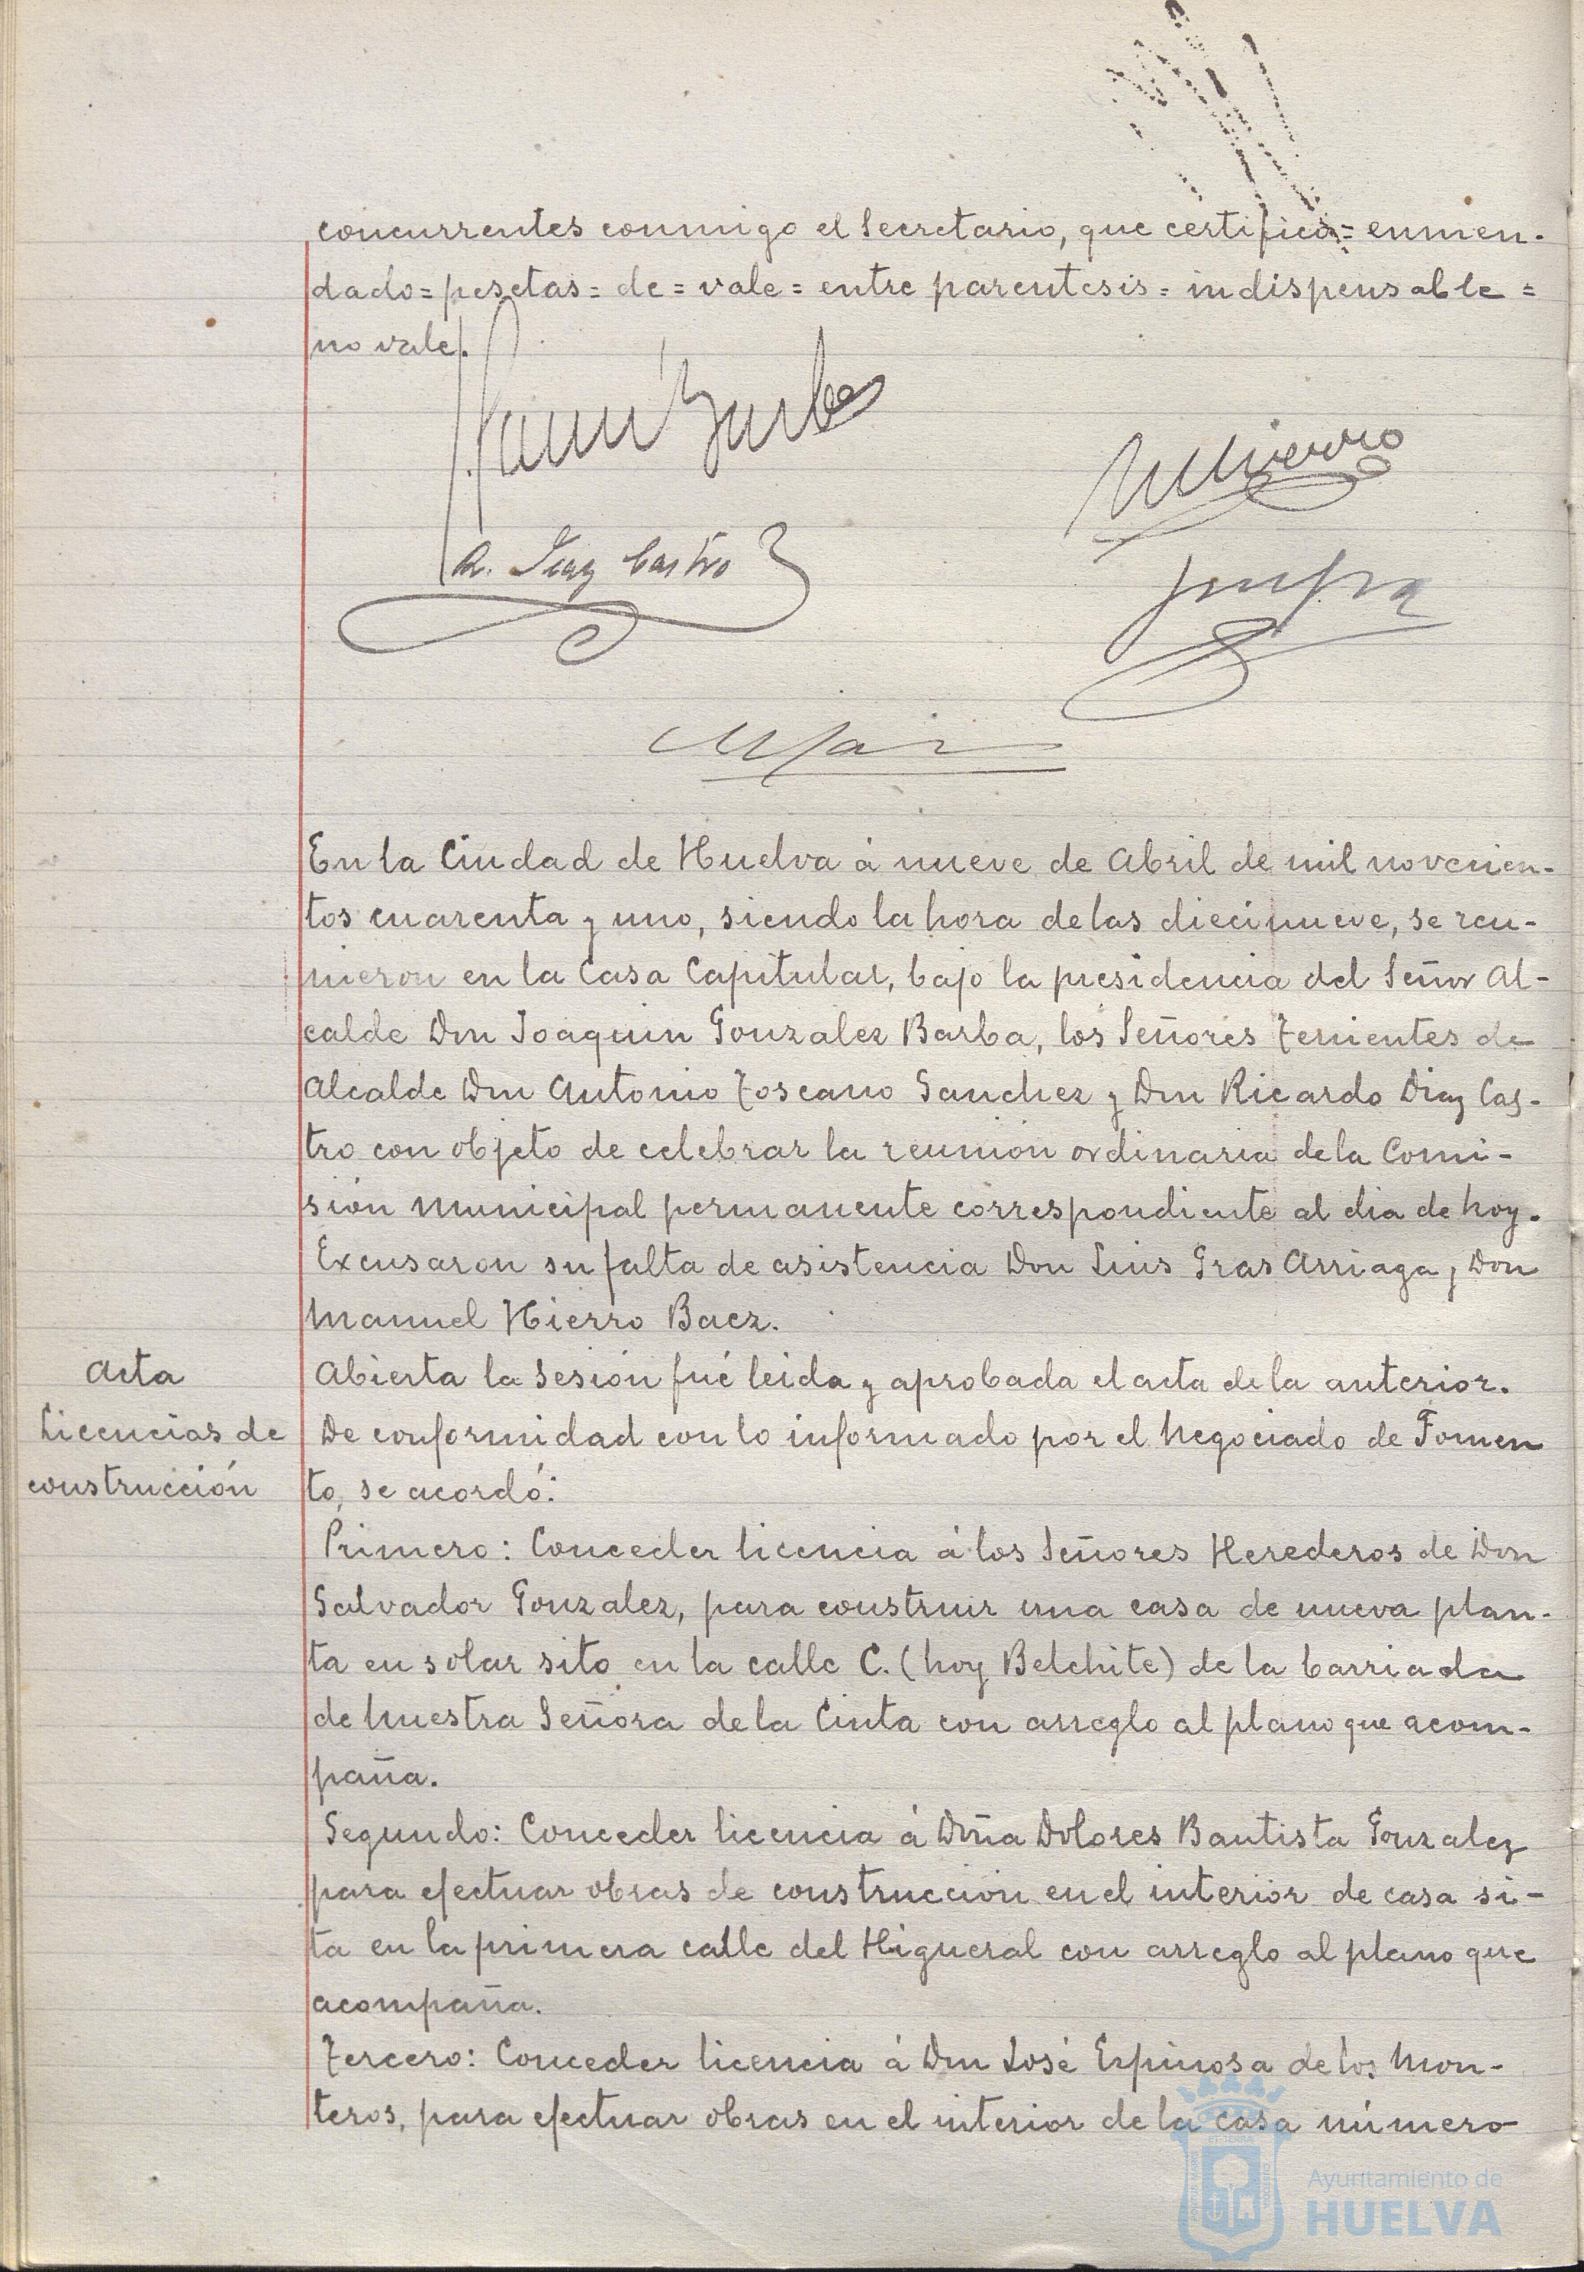 concurrentes conmigo el Secretario, que certifico = enmen-
dado = pesetas = de = vale = entre parentesis = indispensable =
no vale.
Hierro
R. Diaz Castro
En la Ciudad de Huelva á nueve de Abril de mil novecien-
tos cuarenta y uno, siendo la hora de las diecinueve, se reu-
nieron en la Casa Capitular, bajo la presidencia del Señor Al-
calde Don Joaquin Gonzalez Barba, los Señores Tenientes de
Alcalde Don Antonio Toscano Sanchez y Don Ricardo Diaz Cas-
tro con objeto de celebrar la reunión ordinaria de la Comi-
sión Municipal permanente correspondiente al dia de hoy.
Excusaron su falta de asistencia Don Luis Gras Arriaga y Don
Manuel Hierro Baez.
Acta
Abierta la Sesión fué leida y aprobada el acta de la anterior.
Licencias de
construcción
De conformidad con lo informado por el Negociado de Fomen
to, se acordó:
Primero: Conceder licencia á los Señores Herederos de Don
Salvador Gonzalez, para construir una casa de nueva plan-
ta en solar sito en la calle C. (hoy Belchite) de la barriada
de Nuestra Señora de la Cinta con arreglo al plano que acom-
paña.
Segundo: Conceder licencia á Doña Dolores Bautista Gonzalez
para efectuar obras de construcción en el interior de casa si-
ta en la primera calle del Higueral con arreglo al plano que
acompaña.
Tercero: Conceder licencia á Don José Espinosa de los Mon-
teros, para efectuar obras en el interior de la casa número
Ayuntamiento de
HUELVA